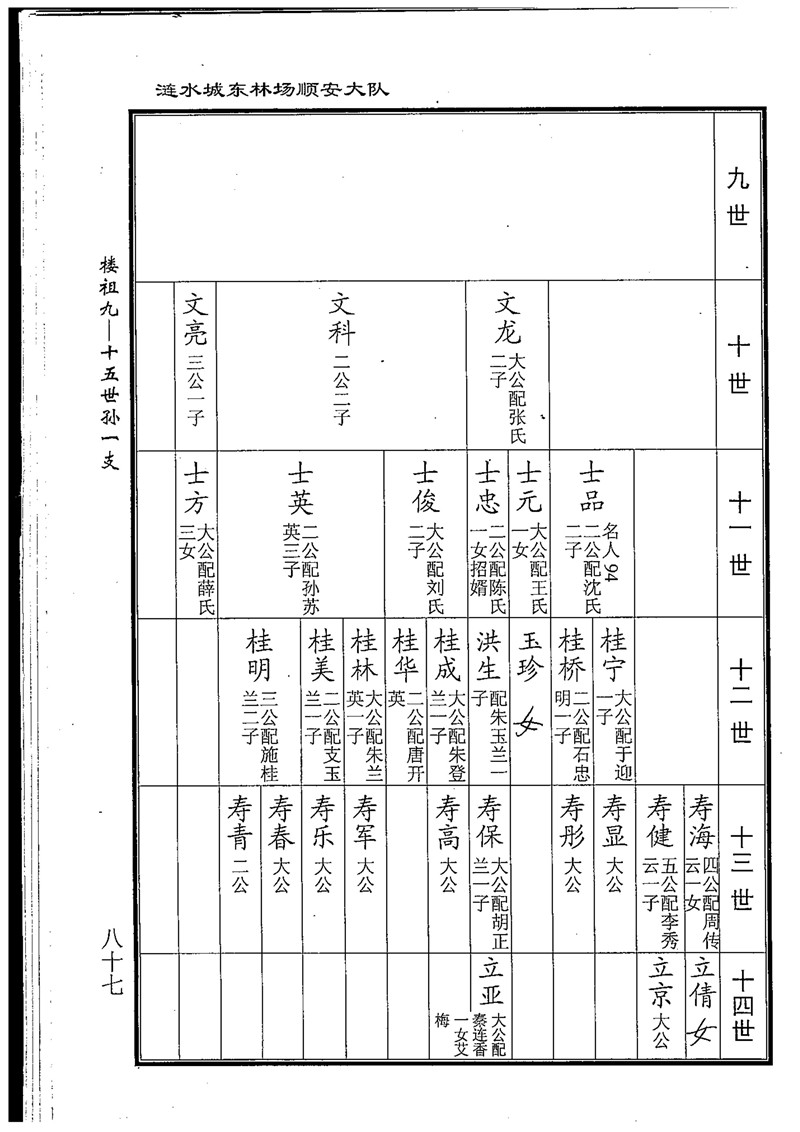 涟水城东林场顺安大队
九世
十世
文龙
大公配张氏
二子
文科
二公二子
文亮
三公一子
十一世
士品
名人94
二公配沈氏
二子
士元
大公配王氏
一女
士忠
二公配陈氏
一女招婿
士俊
大公配刘氏
二子
士英
二公配孙苏
英三子
士方
大公配薛氏
三女
十二世
桂宁
大公配于迎
一子
桂桥
二公配石忠
明一子
玉珍
女
洪生
配朱玉兰一
子
桂成
大公配朱登
兰一子
桂华
二公配唐开
英
桂林
大公配朱兰
英一子
桂美
二公配支玉
兰一子
桂明
三公配施桂
兰二子
十三世
寿海
四公配周传
云一女
寿健
五公配李秀
云一子
寿显
大公
寿彤
大公
寿保
大公配胡正
兰一子
寿高
大公
寿军
大公
寿乐
大公
寿春
大公
寿青
二公
十四世
立倩
女
立京
大公
立亚
大公配
秦连香
一女艾
梅
搂祖九—十五世孙一支
八十七